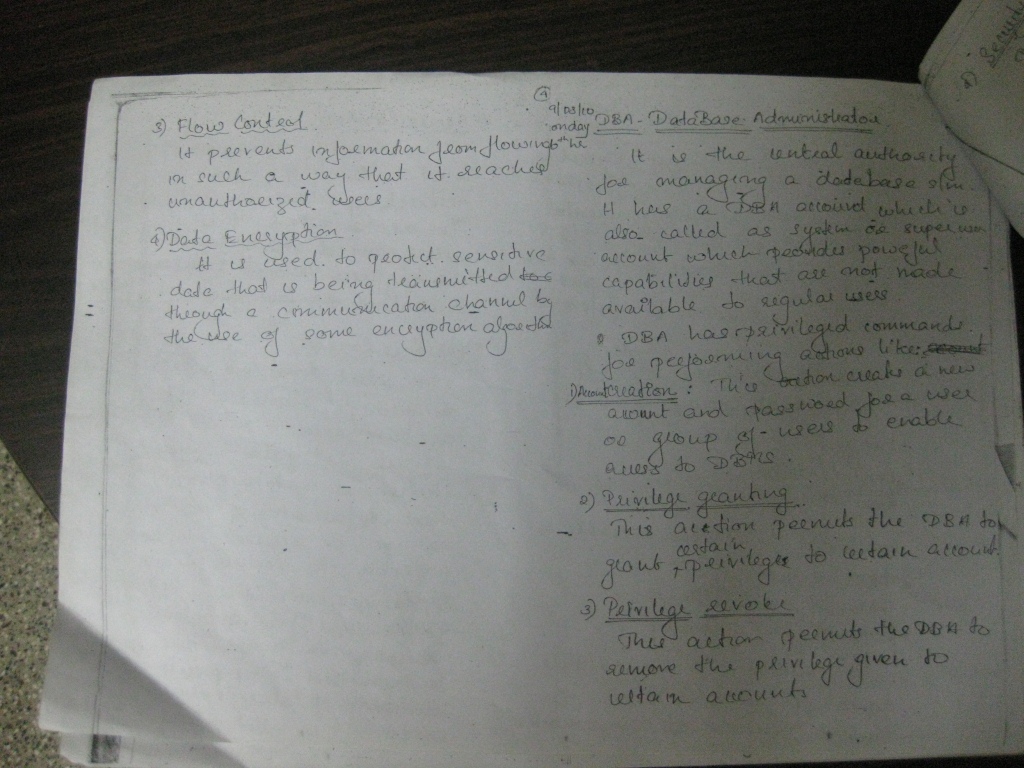 3) Flow Control
It prevents information from flowing
in such a way that it reaches
unauthorized users
4) Data Encryption
It is used to protect sensitive
data that is being transmitted
through a communication channel by
the use of some encryption
4
9/03/10
onday
DBA - DataBase Administrator
It is the central authority
for managing a database s/m.
It has a DBA account which is
also called as system or superuser
account which provides powerful
capabilities that are not made
available to regular users.
DBA has privileged commands
for performing actions like:
1) Account creation: This action creats a new
account and password for a user
or group of users to enable
access to DBMS.
2) Privilege granting
This action permits the DBA to
certain
grant privileges to certain account
3) Privilege revoke
This action permits the DBA to
remove the privilege given to
certain accounts